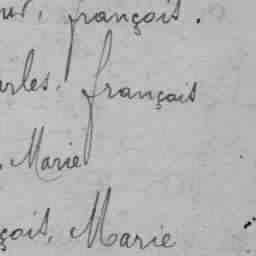 françois.
arles, françois
Marie
çois, Marie